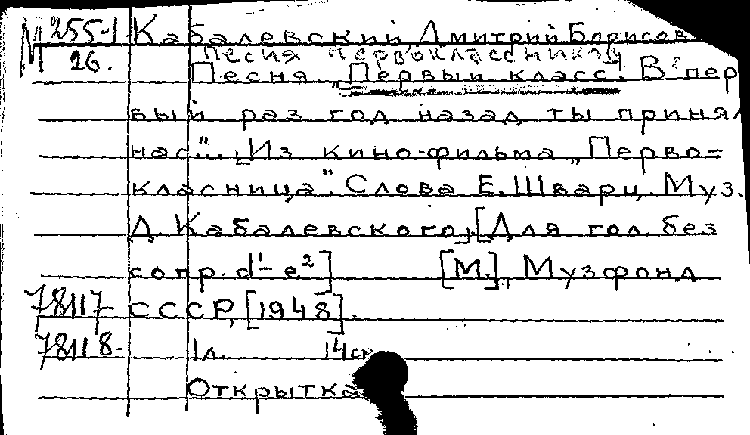 М 255-1 Кабалевский Дмитрий Борисов
26. Песня первоклассников
Песня „Первый класс". В пер
вый раз год назад ты принял
нас"... Из кино-фильма „Перво=
класница". Слова Е. Шварц. Муз.
Д. Кабалевского, [Для гол. без
сопр. d¹- e²] [М.], Музфонд
78117- СССР, [1948].
78118- 1 л. 14 см
Открытка